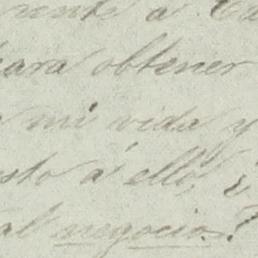 para obtener
mi vida y
sto á ello, ¿
al negocio?